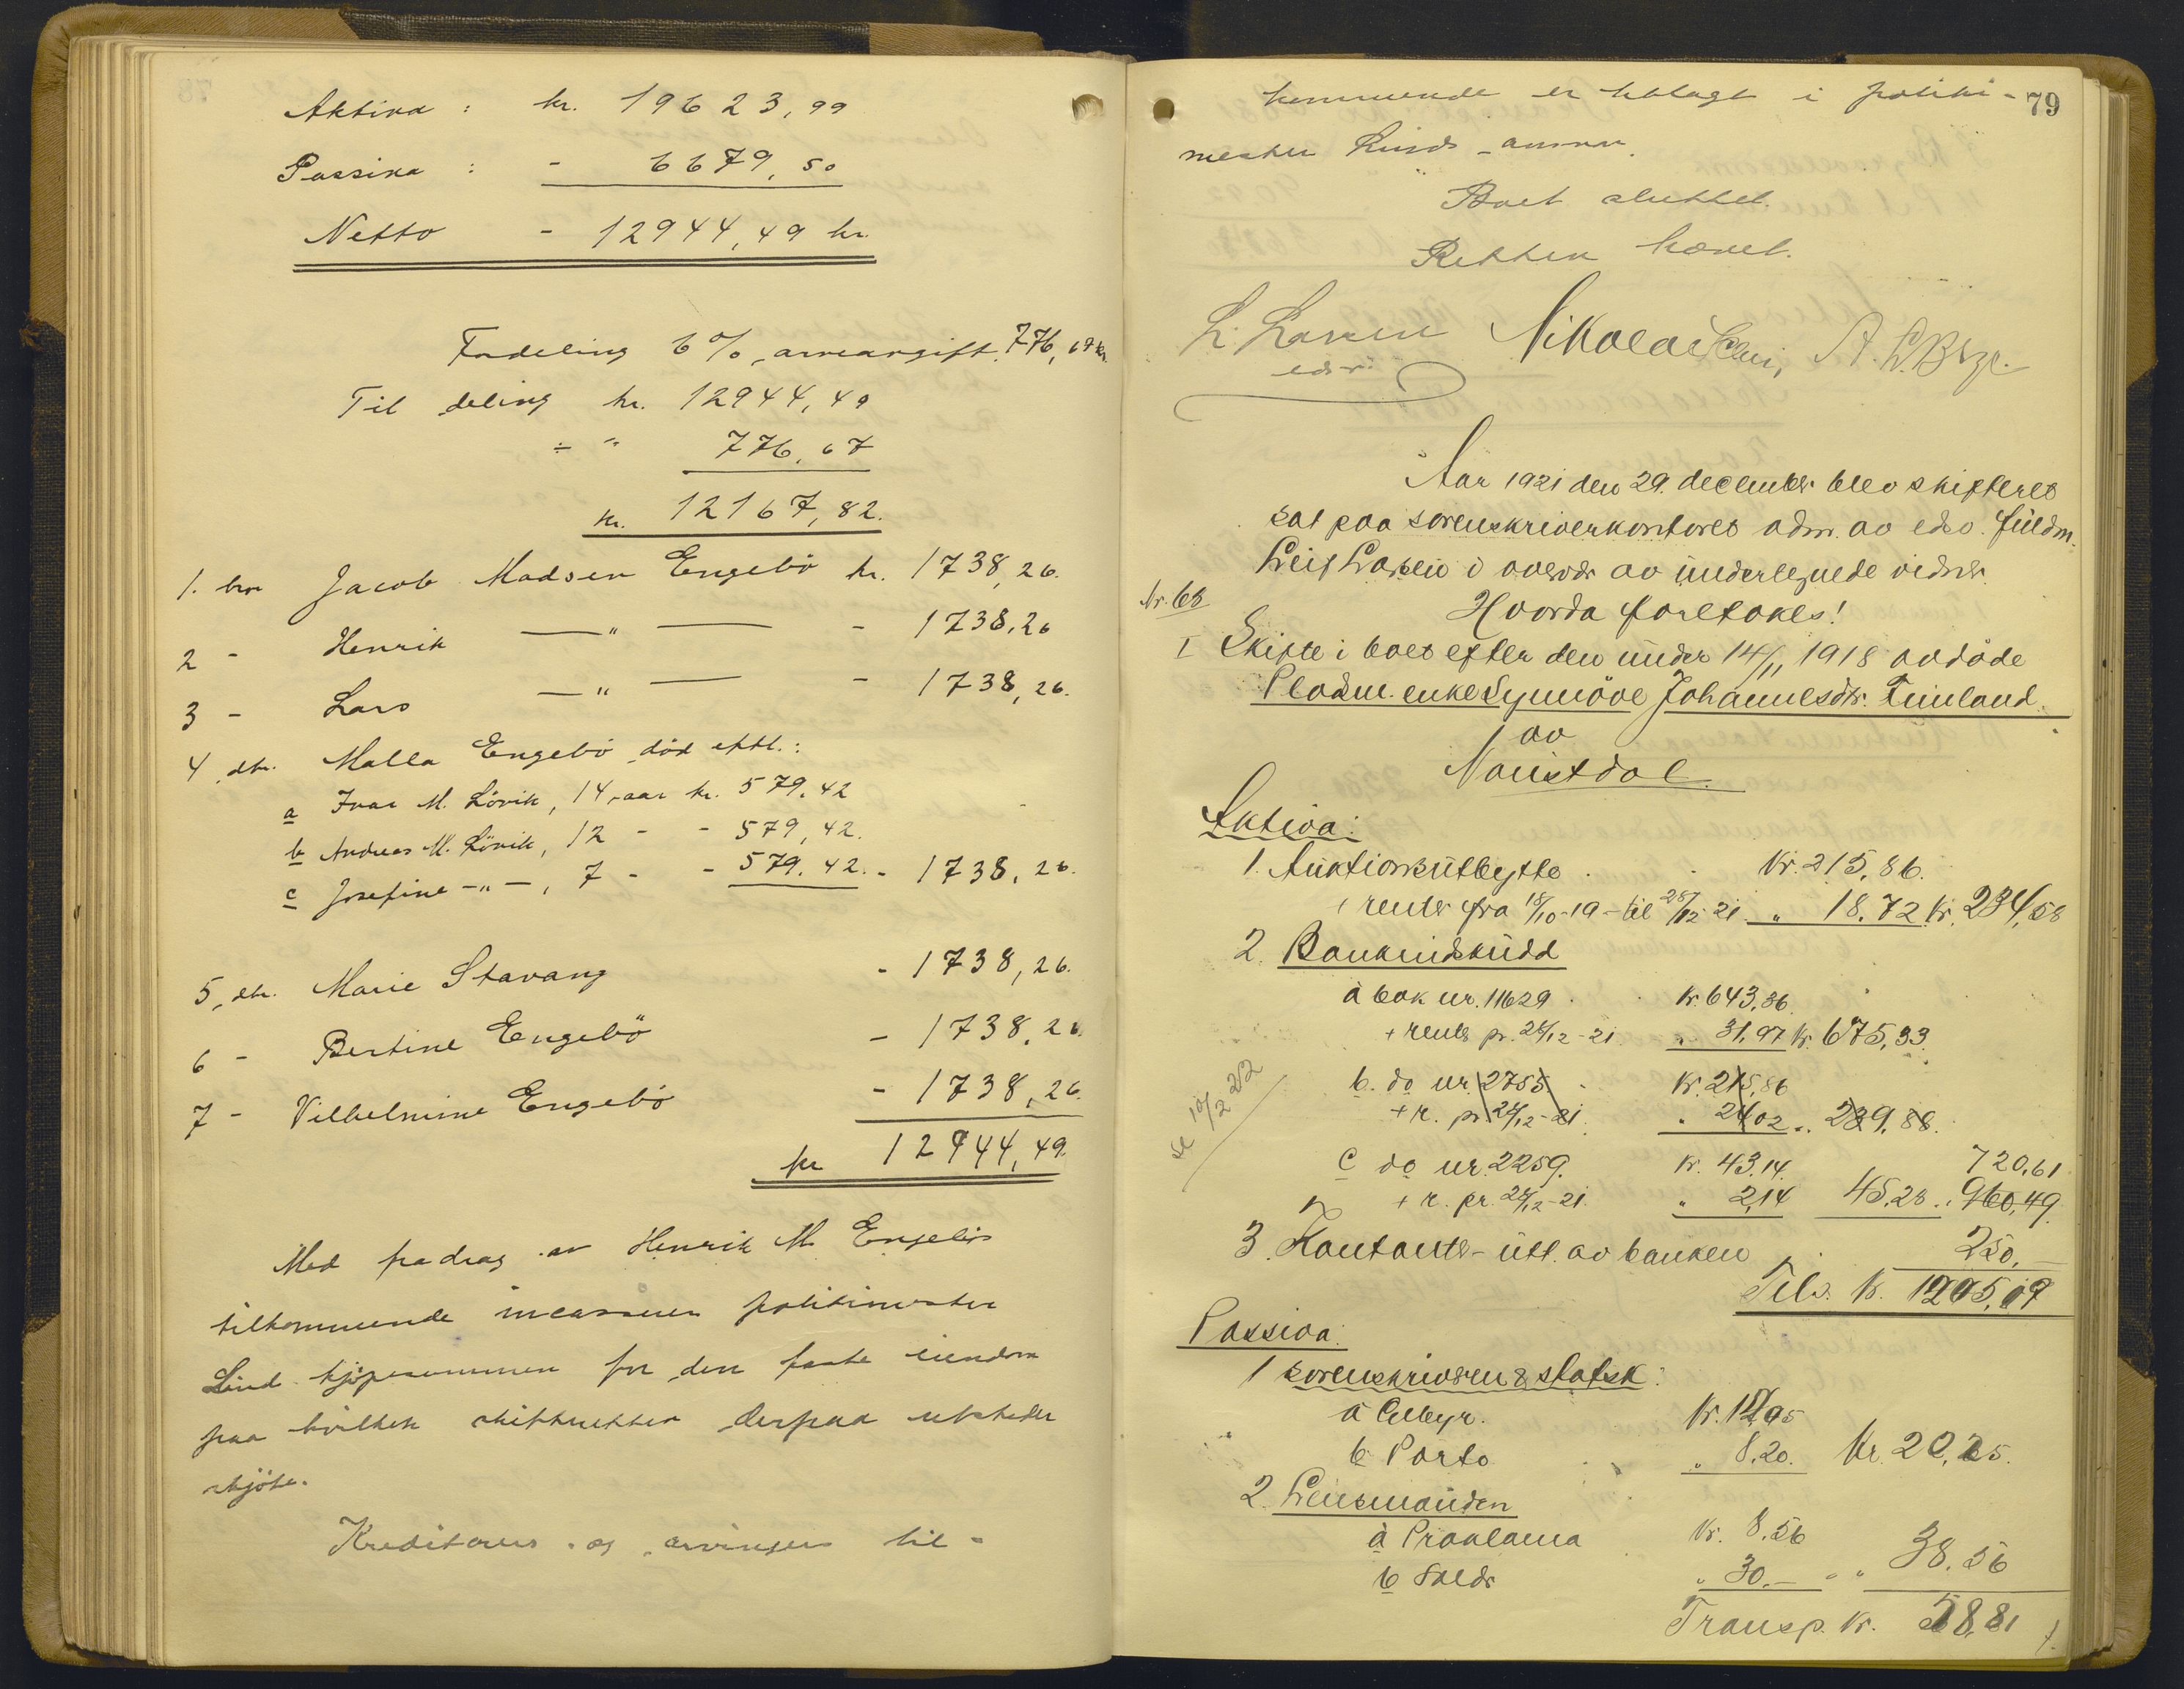 Aktiva : kr. 19623,99
Passiva : - 6679,50
Netto - 12944,49 kr.
Fordeling 6% arveavgift. 776,67 kr.
Til deling kr. 12944,49
÷ " 776,67
kr. 12167,82.
1. bror Jacob Madsen Engebö kr. 1738,26.
2 - Henrik —"— - 1738,26
3 - Lars —"— - 1738,26.
4 dtr. Malla Engebö död eftl.:
a Ivar M. Lövik, 14 aar kr. 579,42
b Andreas M. Lövik, 12 - - 579,42.
c Josefine -"-, 7 - - 579,42. - 1738,26.
5, dtr. Marie Stavang - 1738,26.
6 - Bertine Engebö - 1738,26
7 - Vilhelmine Engebö - 1738,26.
kr 12944,49.
Med fradrag av Henrik M. Engebös
tilkommende incasserer politimester
Lind kjöpesummen for den faste eiendom
paa hvilken skifteretten derpaa utsteder
skjöte.
Kreditorers og arvingers til-
79
kommende er utlagt i politi-
mester Linds ansvar.
Boet sluttet.
Retten hævet.
L. Larsen Nikolai A. L.
edsv.
Aar 1921 den 29. december blev skifteret
sat paa sorenskriverkontoret adm. av edsv. fuldm.
Leif Larsen i overvær av undertegnede vidner.
Nr. 68
Hvorda foretokes!
I Skifte i boet efter den under 14/11 1918 avdöde
Pladsm. enke Synnöve Johannesdtr. Timland
av
Naustdal.
Aktiva:
1. Auktionsutbytte Kr. 215,86.
+ renter fra 18/10-19 - til 28/12-21 " 18.72 kr. 234,58
2. Bankindskudd
a bok nr. 11629 Kr. 643,36
+ renter pr. 28/12-21 " 31,97 kr. 675,33.
b. do nr. 2755 Kr. 215,86
+ r. pr. 28/12-21. " 24,02 .. 239,88.
se 10/2 22
c do nr. 2259. Kr. 43,14. 720,61
+ r. pr. 28/12-21. " 2,14 45,28 .. 960,49
3. Kontanter - utt. av banken 250,—
Tils. kr. 1205,19
Passiva:
1 sorenskriveren & statsk:
a Gebyr. Kr. 12,05
b Porto " 8,20. Kr. 20,25.
2. Lensmanden
a Proklama Kr. 8,56
b Salær " 30.— - " 38,56
Transp. Kr. 58,81